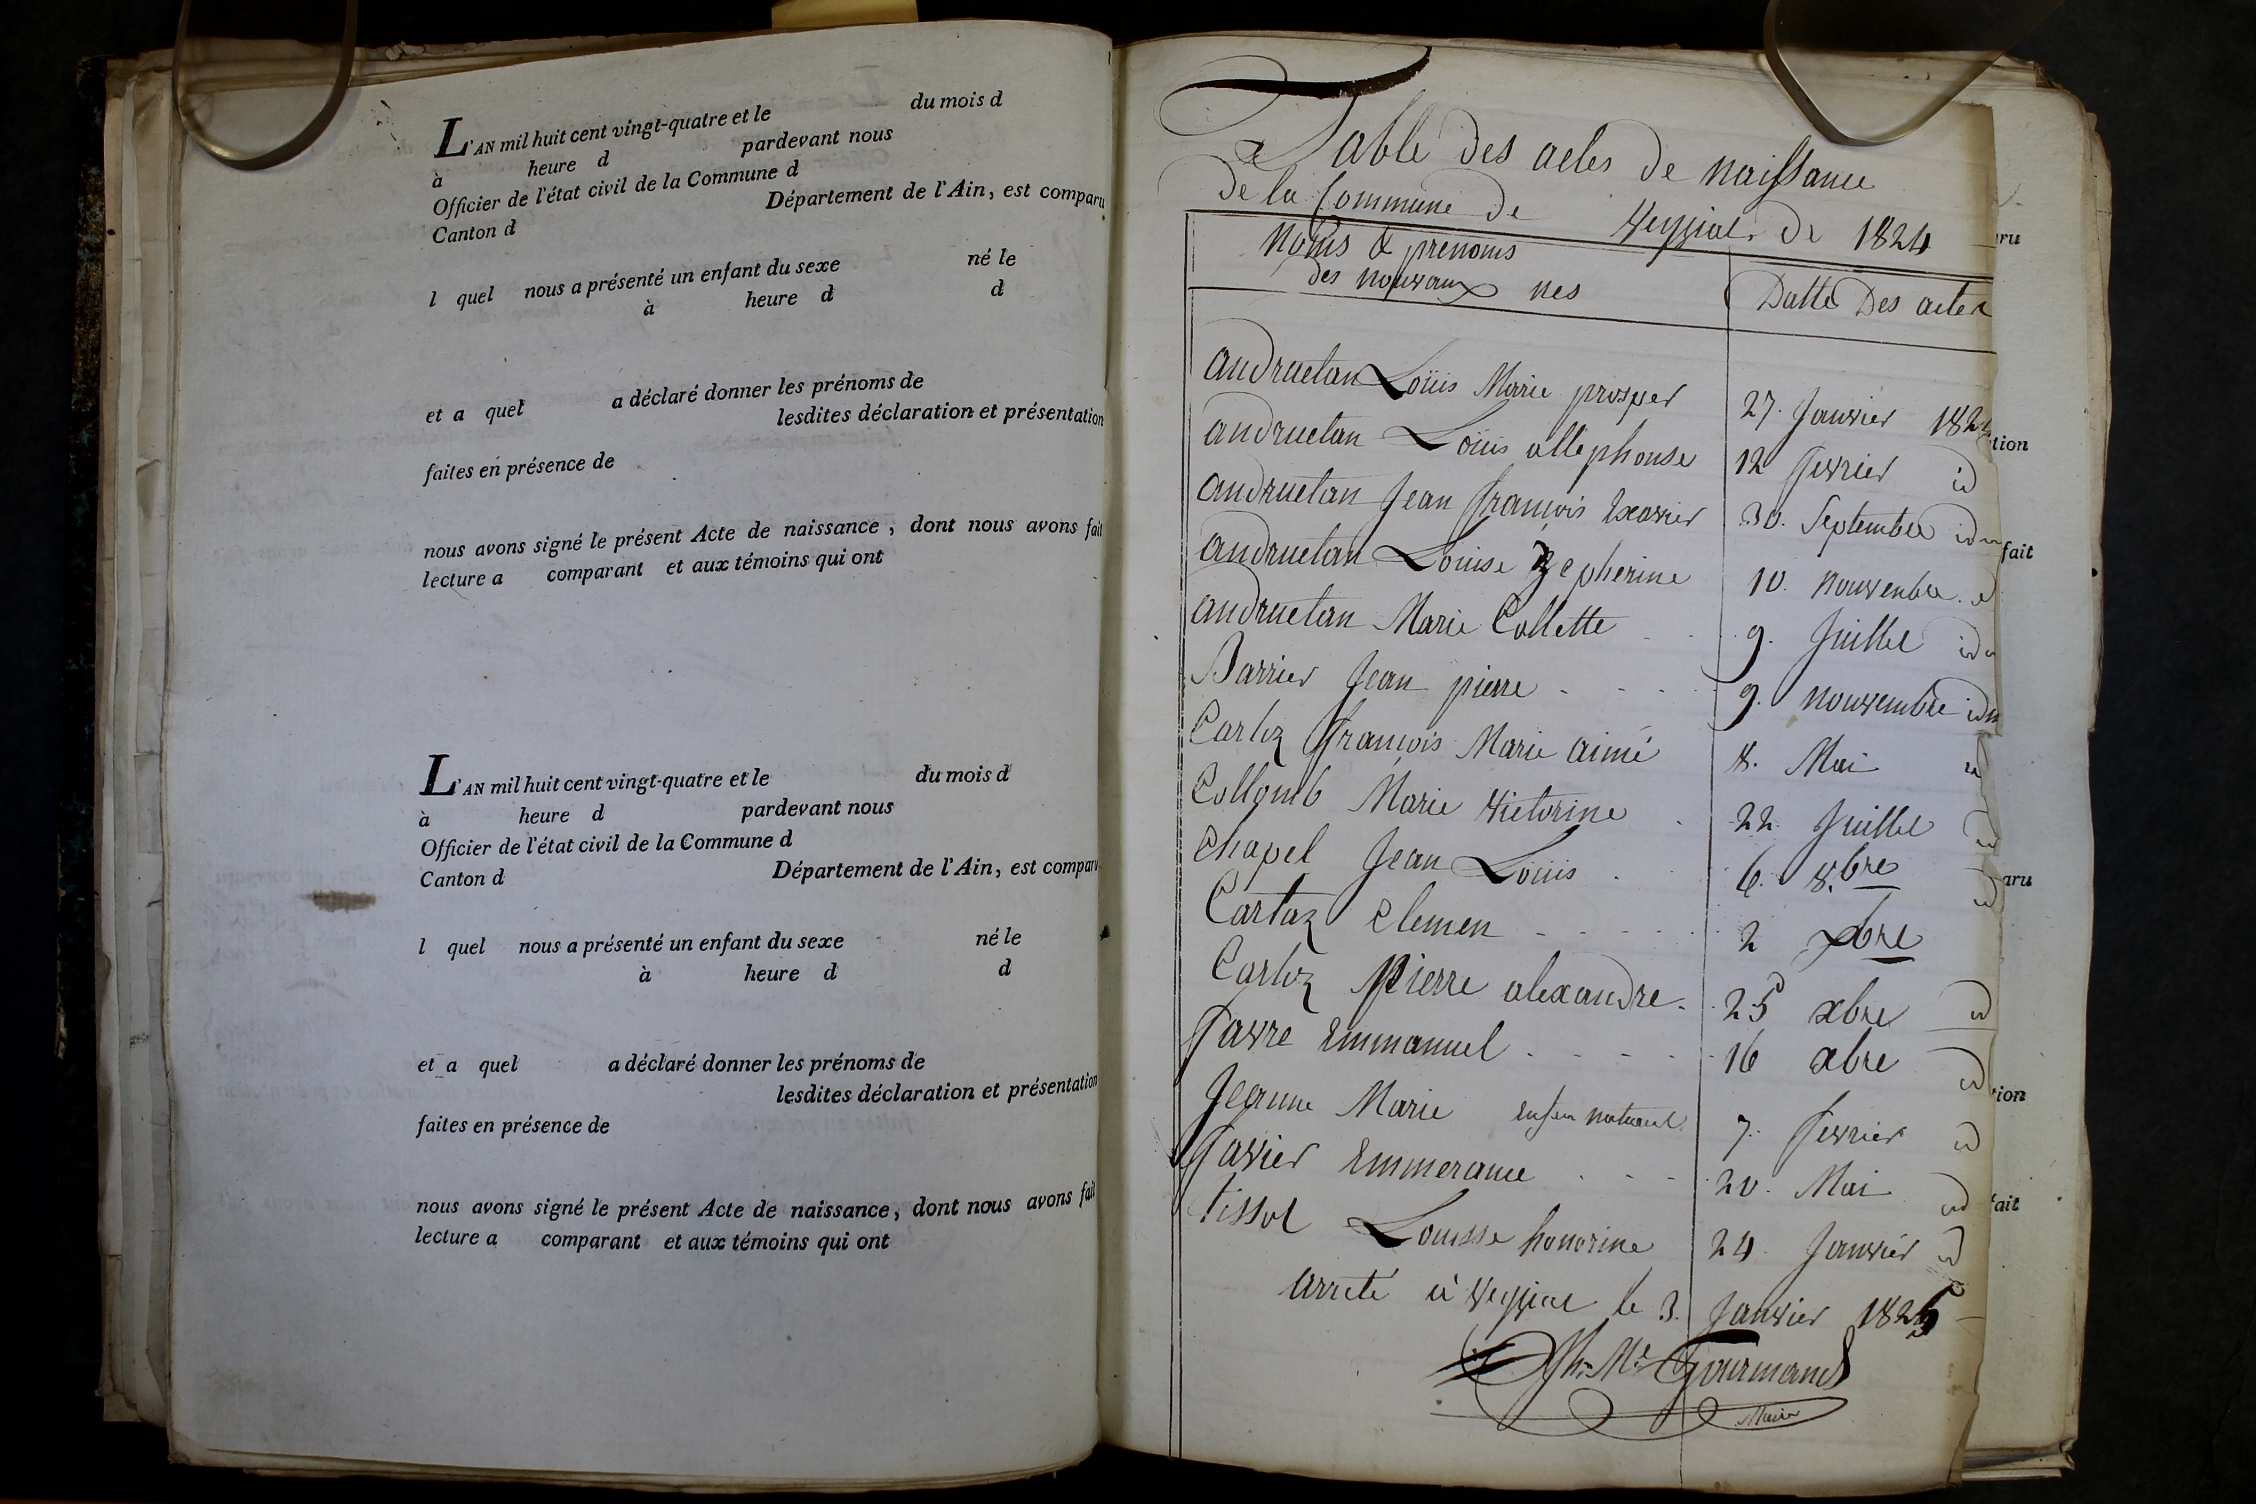 L'AN mil huit cent vingt-quatre et le du mois d
à heure d pardevant nous
Officier de l'état civil de la Commune d
Canton d Département de l'Ain, est comparu
l quel nous a présenté un enfant du sexe né le
à heure d d
et a quel a déclaré donner les prénoms de
lesdites déclaration et présentation
faites en présence de
nous avons signé le présent Acte de naissance, dont nous avons fait
lecture a comparant et aux témoins qui ont
L'AN mil huit cent vingt-quatre et le du mois d
à heure d pardevant nous
Officier de l'état civil de la Commune d
Canton d Département de l'Ain, est comparu
l quel nous a présenté un enfant du sexe né le
à heure d d
et a quel a déclaré donner les prénoms de
lesdites déclaration et présentation
faites en présence de
nous avons signé le présent Acte de naissance, dont nous avons fait
lecture a comparant et aux témoins qui ont
Table des actes de naissance
de la Commune de Veyziat de 1824
Noms & prenoms
des nouvaux nes
Datte Des actes
andruetan Louis Marie prosper 27. Janvier 1824
andruetan Louis allephonse 12 fevrier id
andruetan Jean françois Exavier 30. Septembre idm
andruetan Louise Zepherine 10. nouvenbre id
andruetan Marie Collette 9. Juillet idm
Barrier Jean pierre 9. nouvembre idm
Carloz François Marie aimé 8. Mai id
Collomb Marie victorine 22. Juillet id
chapel Jean Louis 6. 8.bre id
Cartaz clemen 2 xbre
Carloz Pierre alexandre 25 xbre id
favre Emmanuel 16 xbre id
Jeanne Marie enfan naturel 7. fevrier id
favier Emmerance 20. Mai id
tissot Louisse honorine 24 Janvier id
arreté à Veyziat le 3. Janvier 1825
Gourmand
Maire
ru
tion
fait
aru
tion
fait